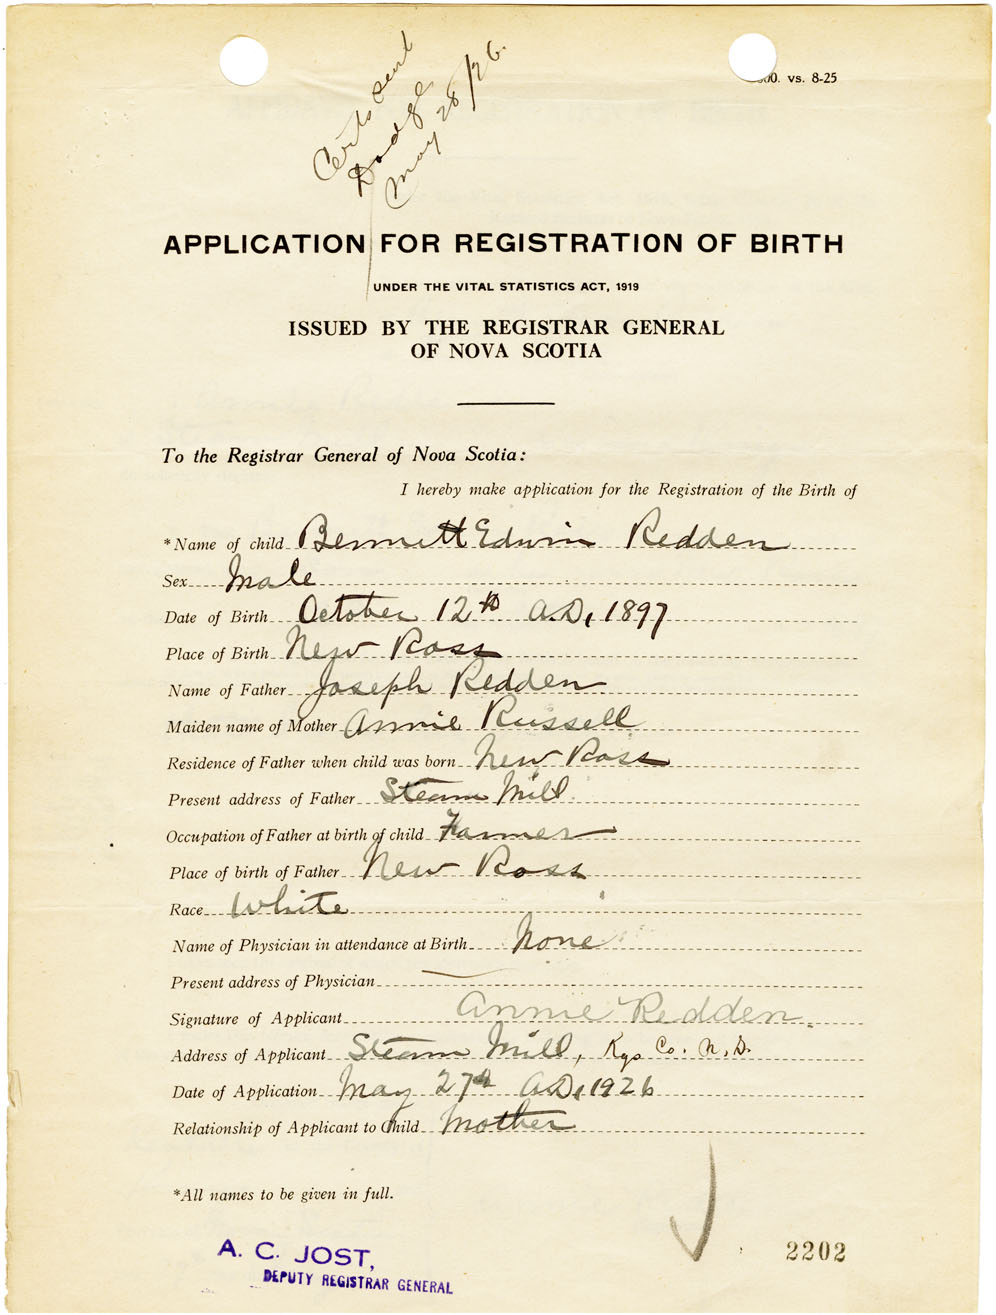 Certs sent
Dodge
May 28/26.
00. vs. 8-25
APPLICATION FOR REGISTRATION OF BIRTH
UNDER THE VITAL STATISTICS ACT, 1919
ISSUED BY THE REGISTRAR GENERAL
OF NOVA SCOTIA
To the Registrar General of Nova Scotia:
I hereby make application for the Registration of the Birth of
*Name of child Bennett Edwin Redden
Sex Male
Date of Birth October 12th A.D, 1897
Place of Birth New Ross
Name of Father Joseph Redden
Maiden name of Mother Annie Russell
Residence of Father when child was born New Ross
Present address of Father Steam Mill
Occupation of Father at birth of child Farmer
Place of birth of Father New Ross
Race White
Name of Physician in attendance at Birth None
Present address of Physician
Signature of Applicant Annie Redden.
Address of Applicant Steam Mill, Kgs Co. N.S.
Date of Application May 27th A.D, 1926
Relationship of Applicant to Child Mother
*All names to be given in full.
A. C. JOST,
DEPUTY REGISTRAR GENERAL
2202